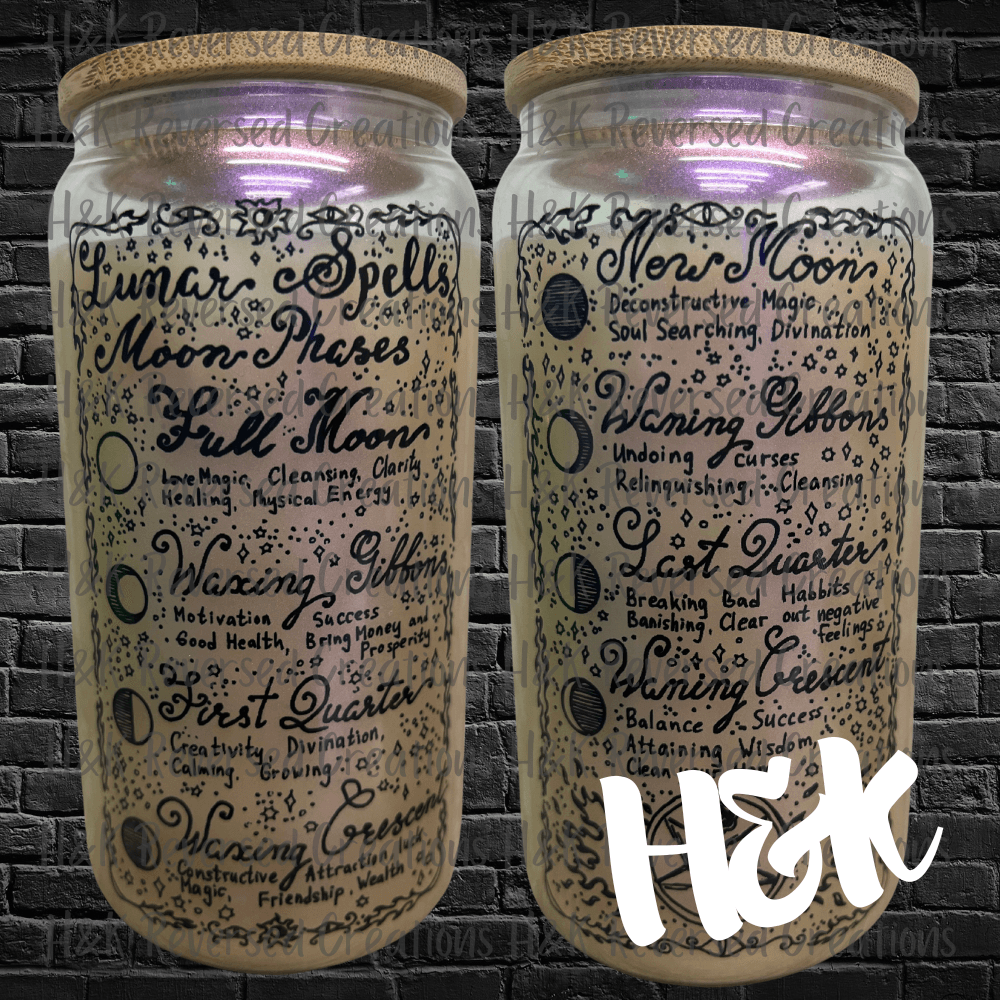 H&K Reversed Creations
Lunar Spells
Moon Phases
Full Moon
Love Magic, Cleansing, Clarity
Healing, Physical Energy
Waxing Gibbons
Motivation Success
Good Health, Bring Money and
Prosperity
First Quarter
Creativity, Divination,
Calming, Growing
Waxing Crescent
Constructive Attraction luck
Magic Friendship, Wealth
New Moon
Deconstructive Magic
Soul Searching, Divination
Waning Gibbons
Undoing Curses
Relinquishing, Cleansing
Last Quarter
Breaking Bad Habbits
Banishing, Clear out negative
feelings
Waning Crescent
Balance Success,
Attaining Wisdom,
H&K